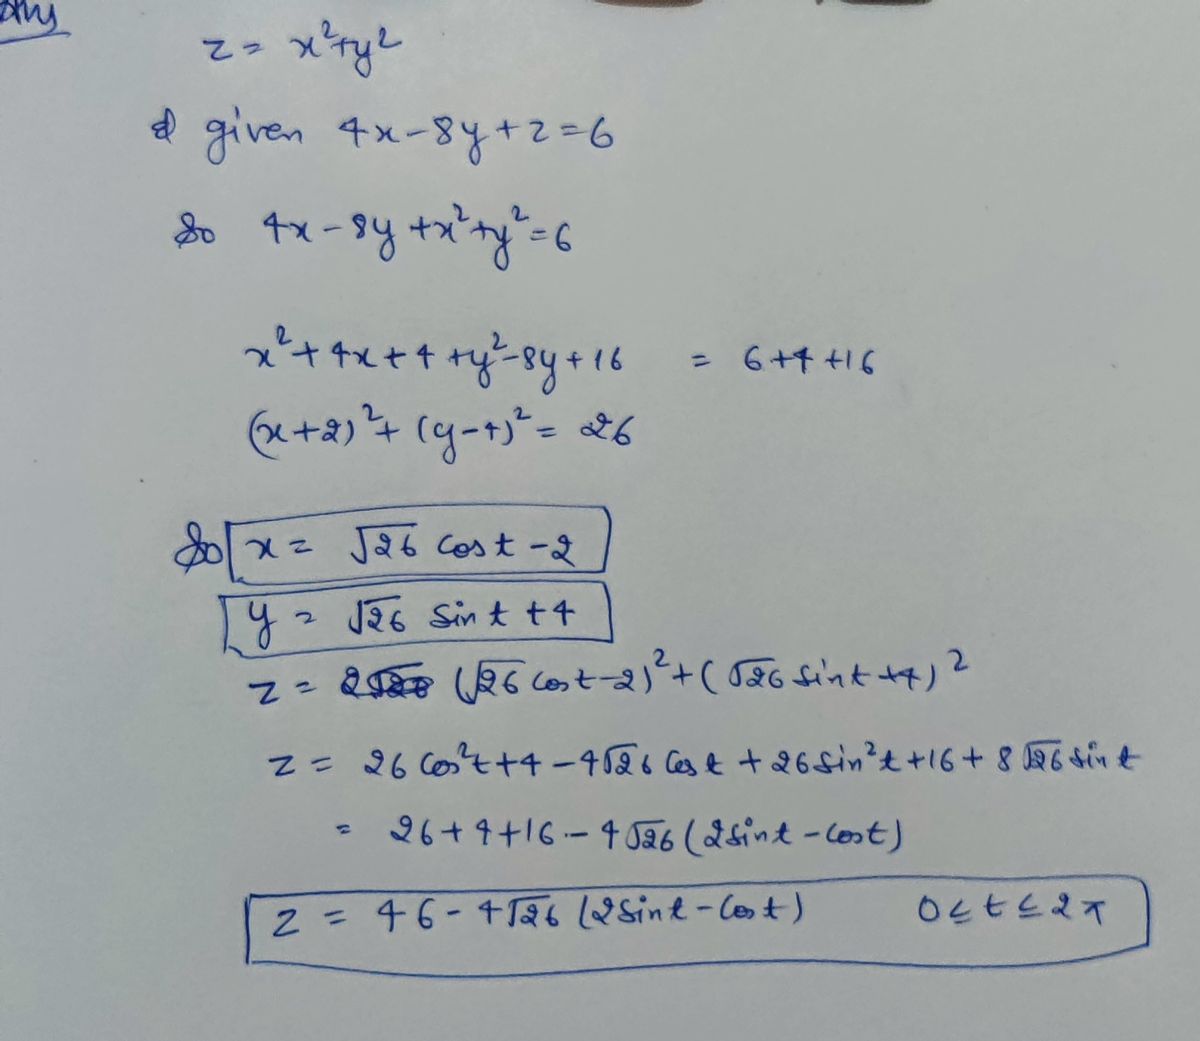 Ans
z = x²+y²
& given 4x-8y+z=6
So 4x-8y+x²+y²=6
x²+4x+4+y²-8y+16 = 6+4+16
(x+2)²+(y-4)² = 26
So x = √26 cost -2
y = √26 Sin t +4
z = (√26 cost-2)²+(√26 sint+4)²
z = 26 Cos²t+4-4√26 Cos t +26 Sin²t+16+8√26 sin t
= 26+4+16-4√26 (2 sint - cost)
z = 46-4√26 (2 Sint - Cos t) 0≤t≤2π